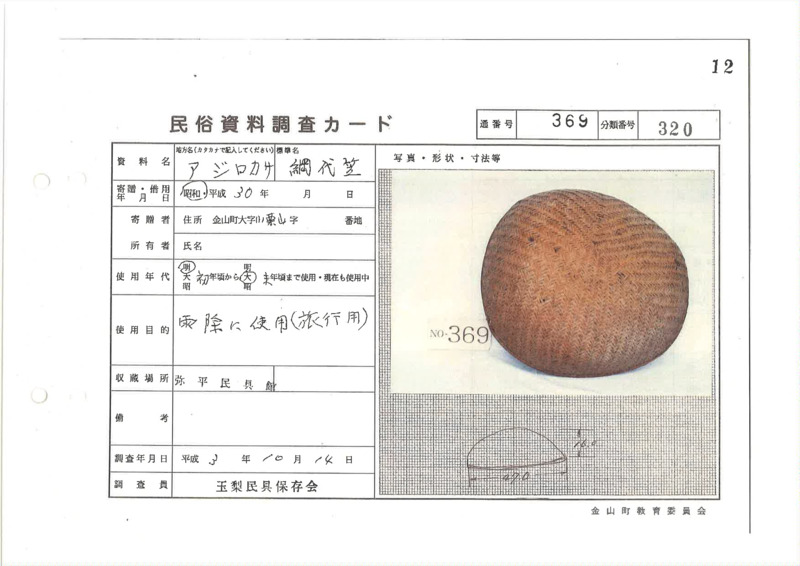 12
民俗資料調査カード
通番号 369 分類番号 320
資料名
地方名(カタカナで記入してください) 標準名
アジロカサ 網代笠
寄贈・借用年月日 昭和・平成 30年 月 日
寄贈者 住所 金山町大字 字 番地
所有者 氏名
使用年代 明大昭 初年頃から 明大昭 末年頃まで使用・現在も使用中
使用目的 雨除に使用(旅行用)
収蔵場所 弥平民具館
備考
調査年月日 平成 3年 10月 14日
調査員 玉梨民具保存会
写真・形状・寸法等
NO-369
16.0
47.0
金山町教育委員会